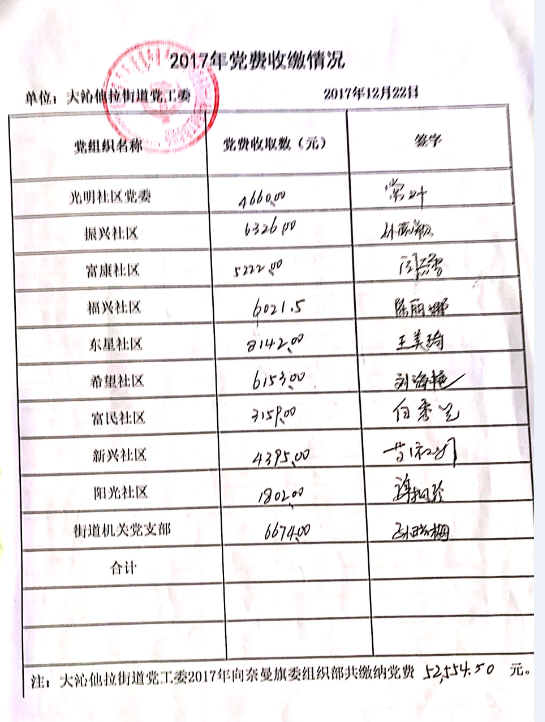 2017年党费收缴情况
单位：大沁他拉街道党工委 2017年12月22日
党组织名称 党费收取数（元） 签字
光明社区党委 4660.00
振兴社区 6326.00
富康社区 5222.00
福兴社区 6021.5
东星社区 8142.00 王美琦
希望社区 6153.00 刘海艳
富民社区 3159.00
新兴社区 4395.00
阳光社区 1802.00
街道机关党支部 6674.00
合计
注：大沁他拉街道党工委2017年向奈曼旗委组织部共缴纳党费 52,554.50 元。